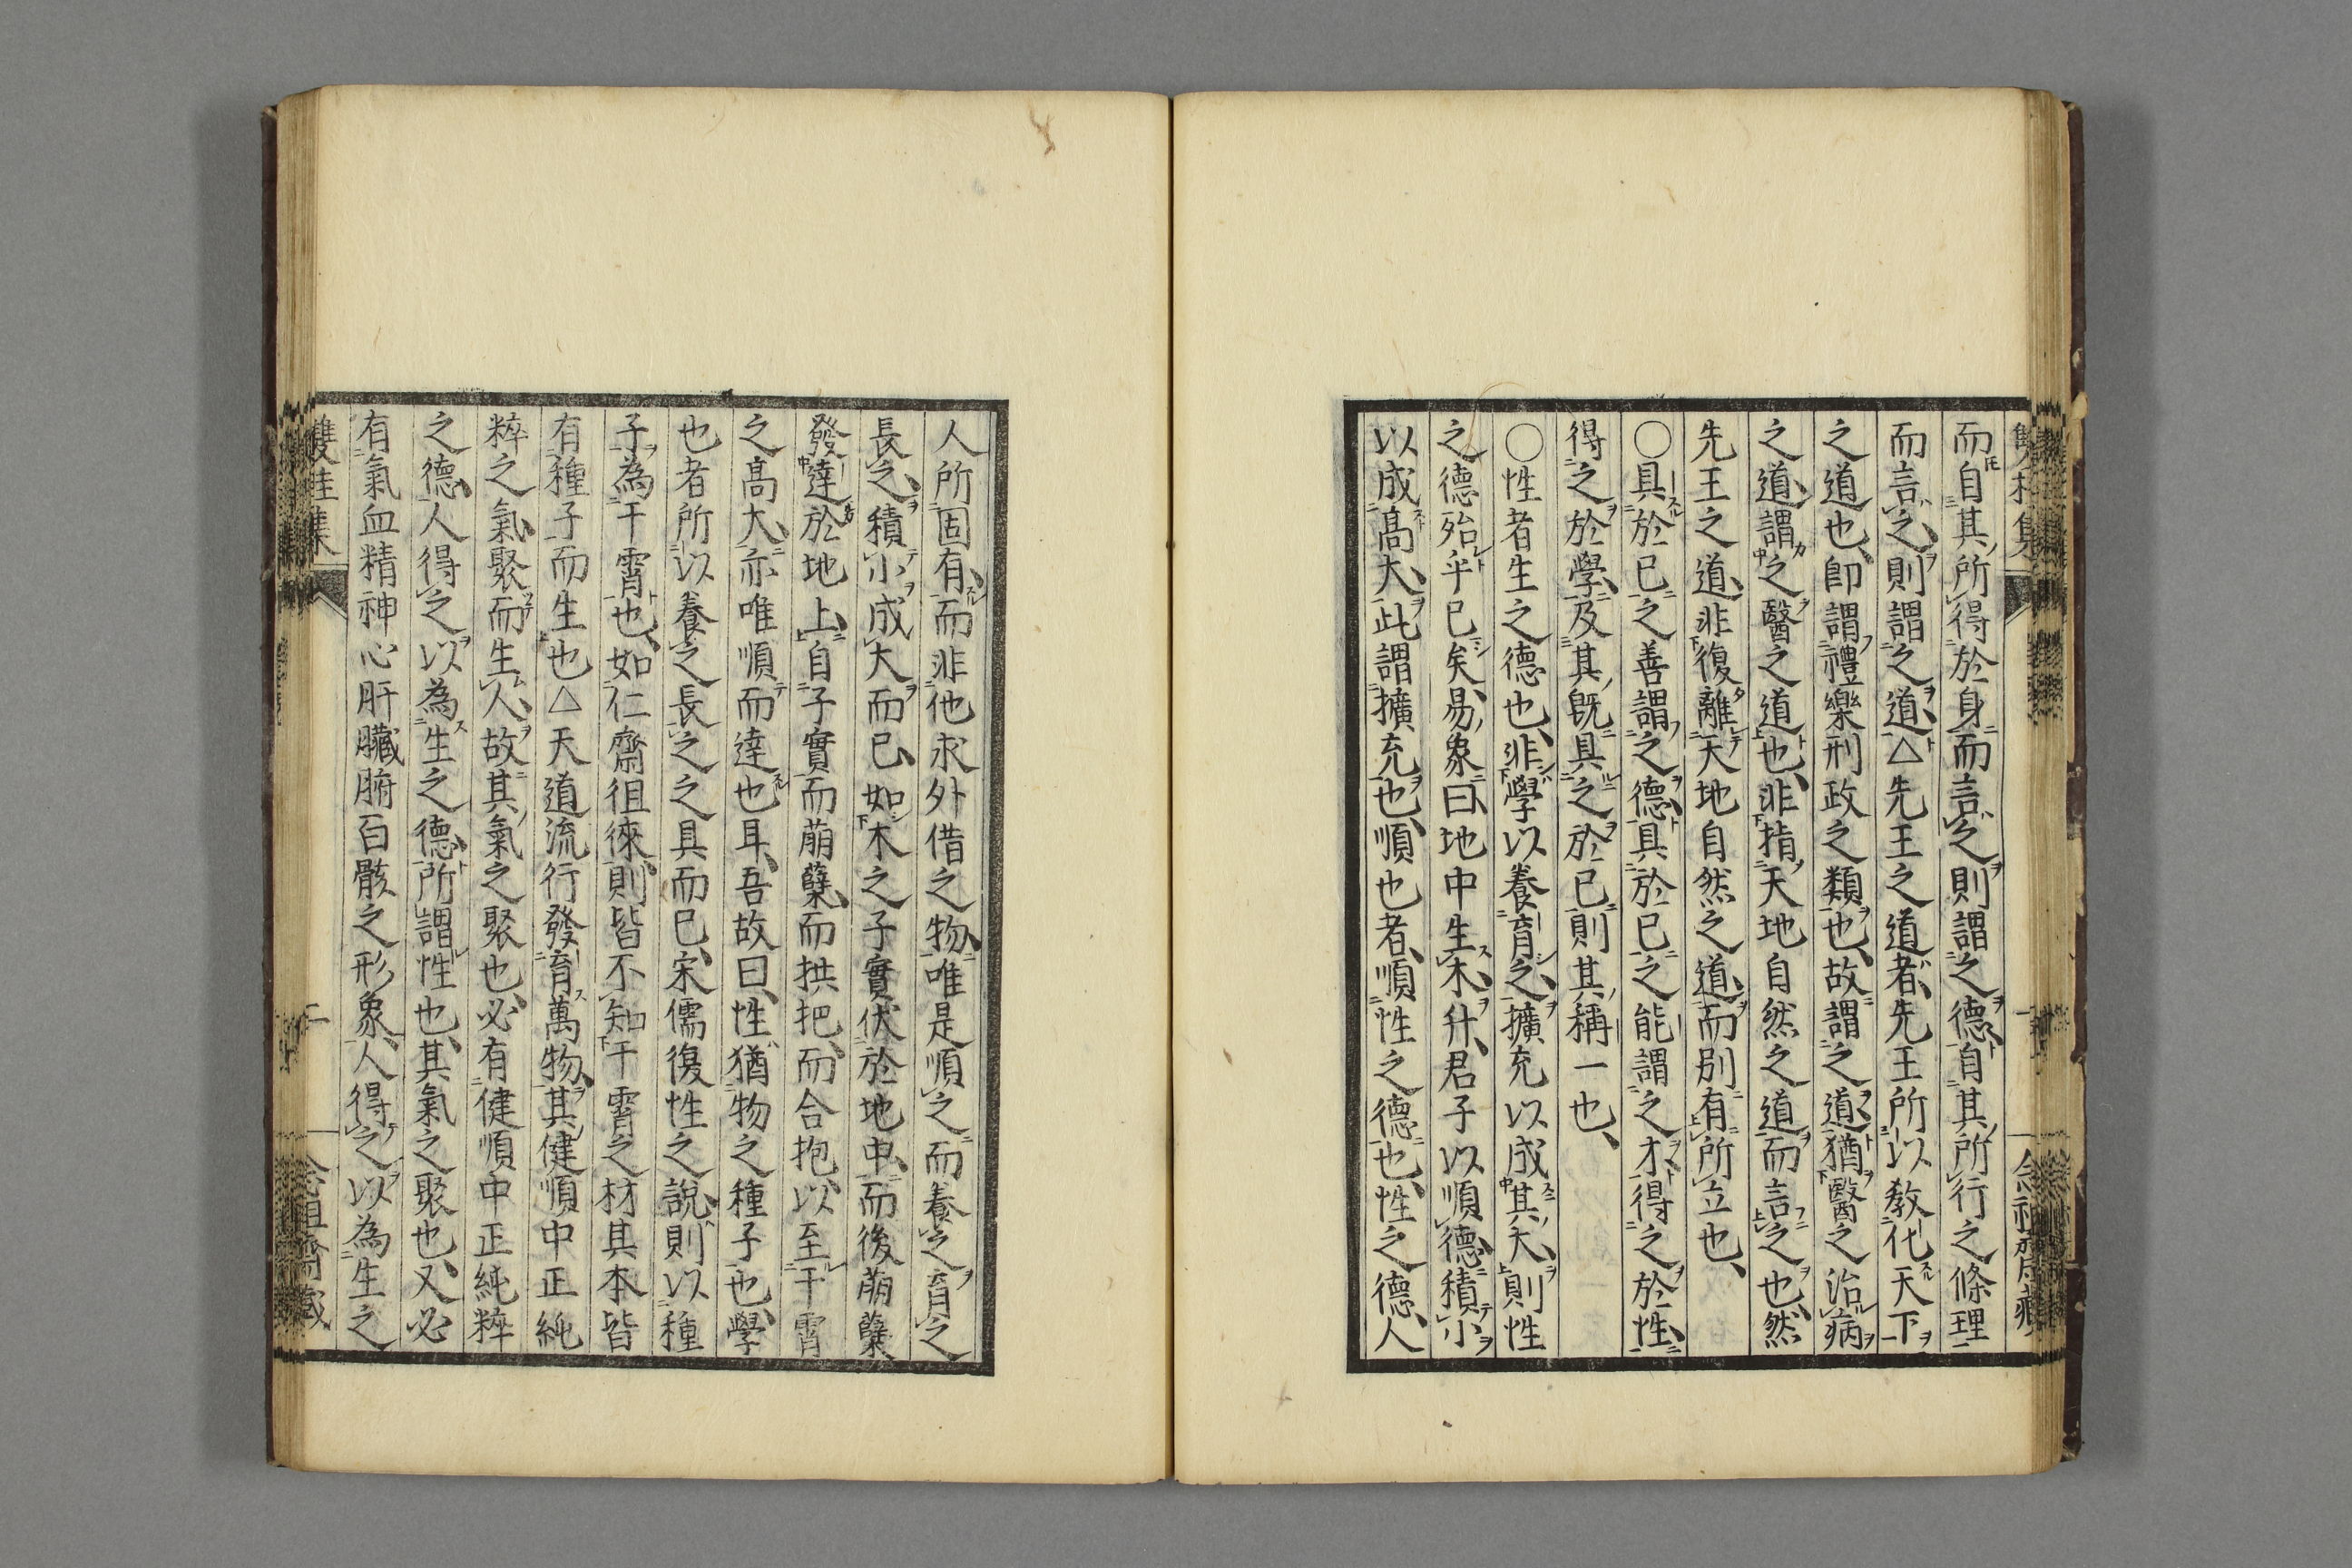 而自其所得於身而言之則謂之德自其所行之條理
而言之則謂之道△先王之道者先王所以教化天下
之道也即謂禮樂刑政之類也故謂之道猶醫之治病
之道謂之醫之道也非指天地自然之道而言之也然
先王之道非復離天地自然之道而別有所立也
〇具於已之善謂之德具於已之能謂之才得之於性
得之於學及其旣具之於已則其稱一也
〇性者生之德也非學以養育之擴充以成其大則性
之德殆乎已矣易象曰地中生木升君子以順德積小
以成高大此謂擴充也順也者順性之德也性之德人
人所固有而非他求外借之物唯是順之而養之育之
長之積小成大而已如木之子實伏於地中而後萠蘖
發達於地上自子實而萠蘖而拱把而合抱以至干霄
之高大亦唯順而達也耳吾故曰性猶物之種子也學
也者所以養之長之之具而已宋儒復性之說則以種
子為干霄也如仁齋徂徠則皆不知干霄之材其本皆
有種子而生也△天道流行發育萬物其健順中正純
粹之氣聚而生人故其氣之聚也必有健順中正純粹
之德人得之以為生之德所謂性也其氣之聚也又必
有氣血精神心肝臟腑百骸之形象人得之以為生之
雙桂集
二
念祖齋藏